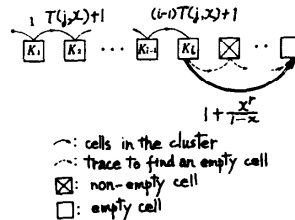 1 T(j,x)+1 (i-1)T(j,x)+1
K₁ K₂ ... Kᵢ₋₁ Kᵢ ..
1 + xʳ/1-x
: cells in the cluster
: trace to find an empty cell
: non-empty cell
: empty cell